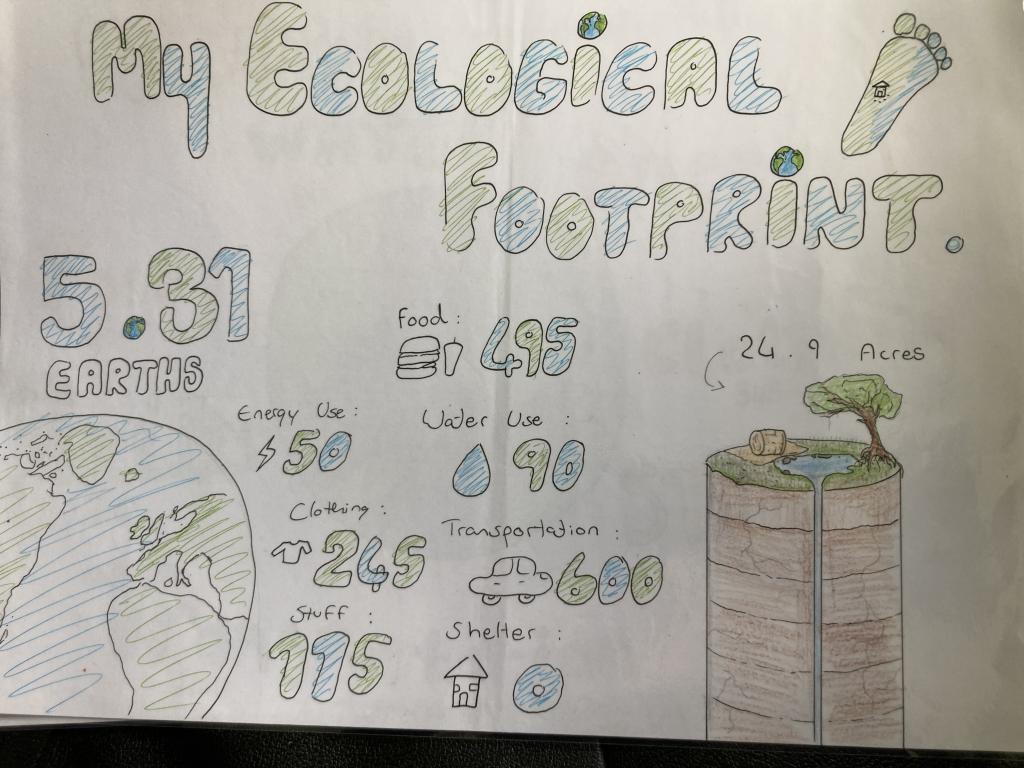 My Ecological
Footprint.
5.31
Earths
Food :
495
24.9 Acres
Energy Use :
50
Water Use :
90
Clothing :
245
Transportation :
600
Stuff :
115
Shelter :
0